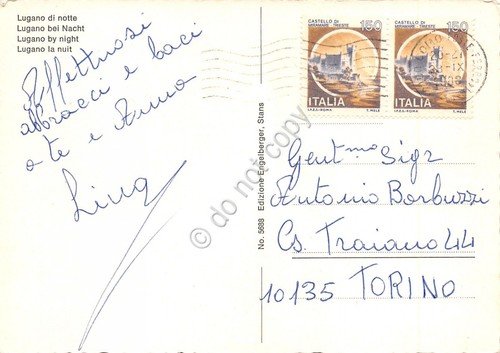 Lugano di notte
Lugano bei Nacht
Lugano by night
Lugano la nuit
Affettuosi
abbracci e baci
a te e Anna
Lina
No. 5688 Edizione Engelberger, Stans
CASTELLO DI
MIRAMARE - TRIESTE
150
ITALIA
I.P.Z.S. - ROMA
T. MELE
CASTELLO DI
MIRAMARE - TRIESTE
150
ITALIA
I.P.Z.S. - ROMA
T. MELE
Gent.mo Sig.
Antonio Barbuzzi
Cs. Traiano 44
10135 TORINO
© do not copy